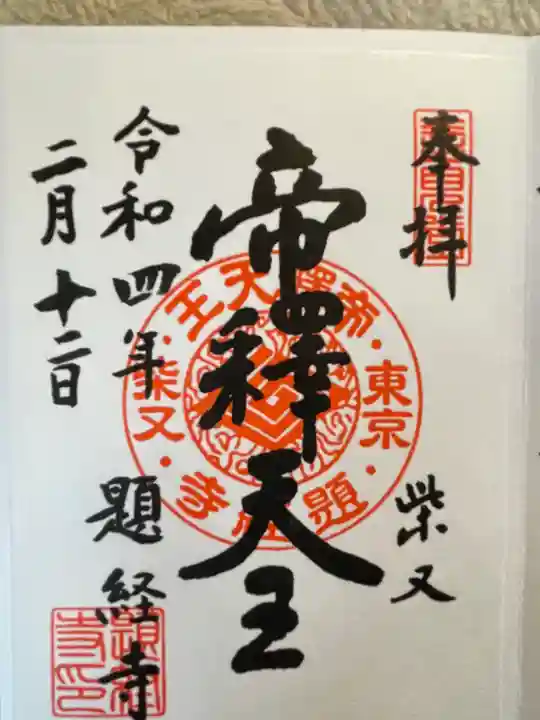 奉拝
柴又
帝釋天王
令和四年
二月十二日
題経寺
帝釋天王
東京
柴又
題経寺
題経寺印